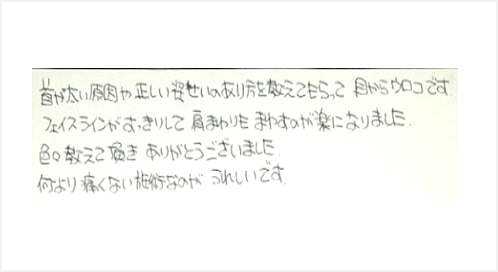 首が太い原因や正しい姿せいのあり方を教えてもらって 目からウロコです
フェイスラインがすっきりして 肩まわりも まわすのが楽になりました.
色々教えて頂き ありがとうございました
何より痛くない施術なのが うれしいです.